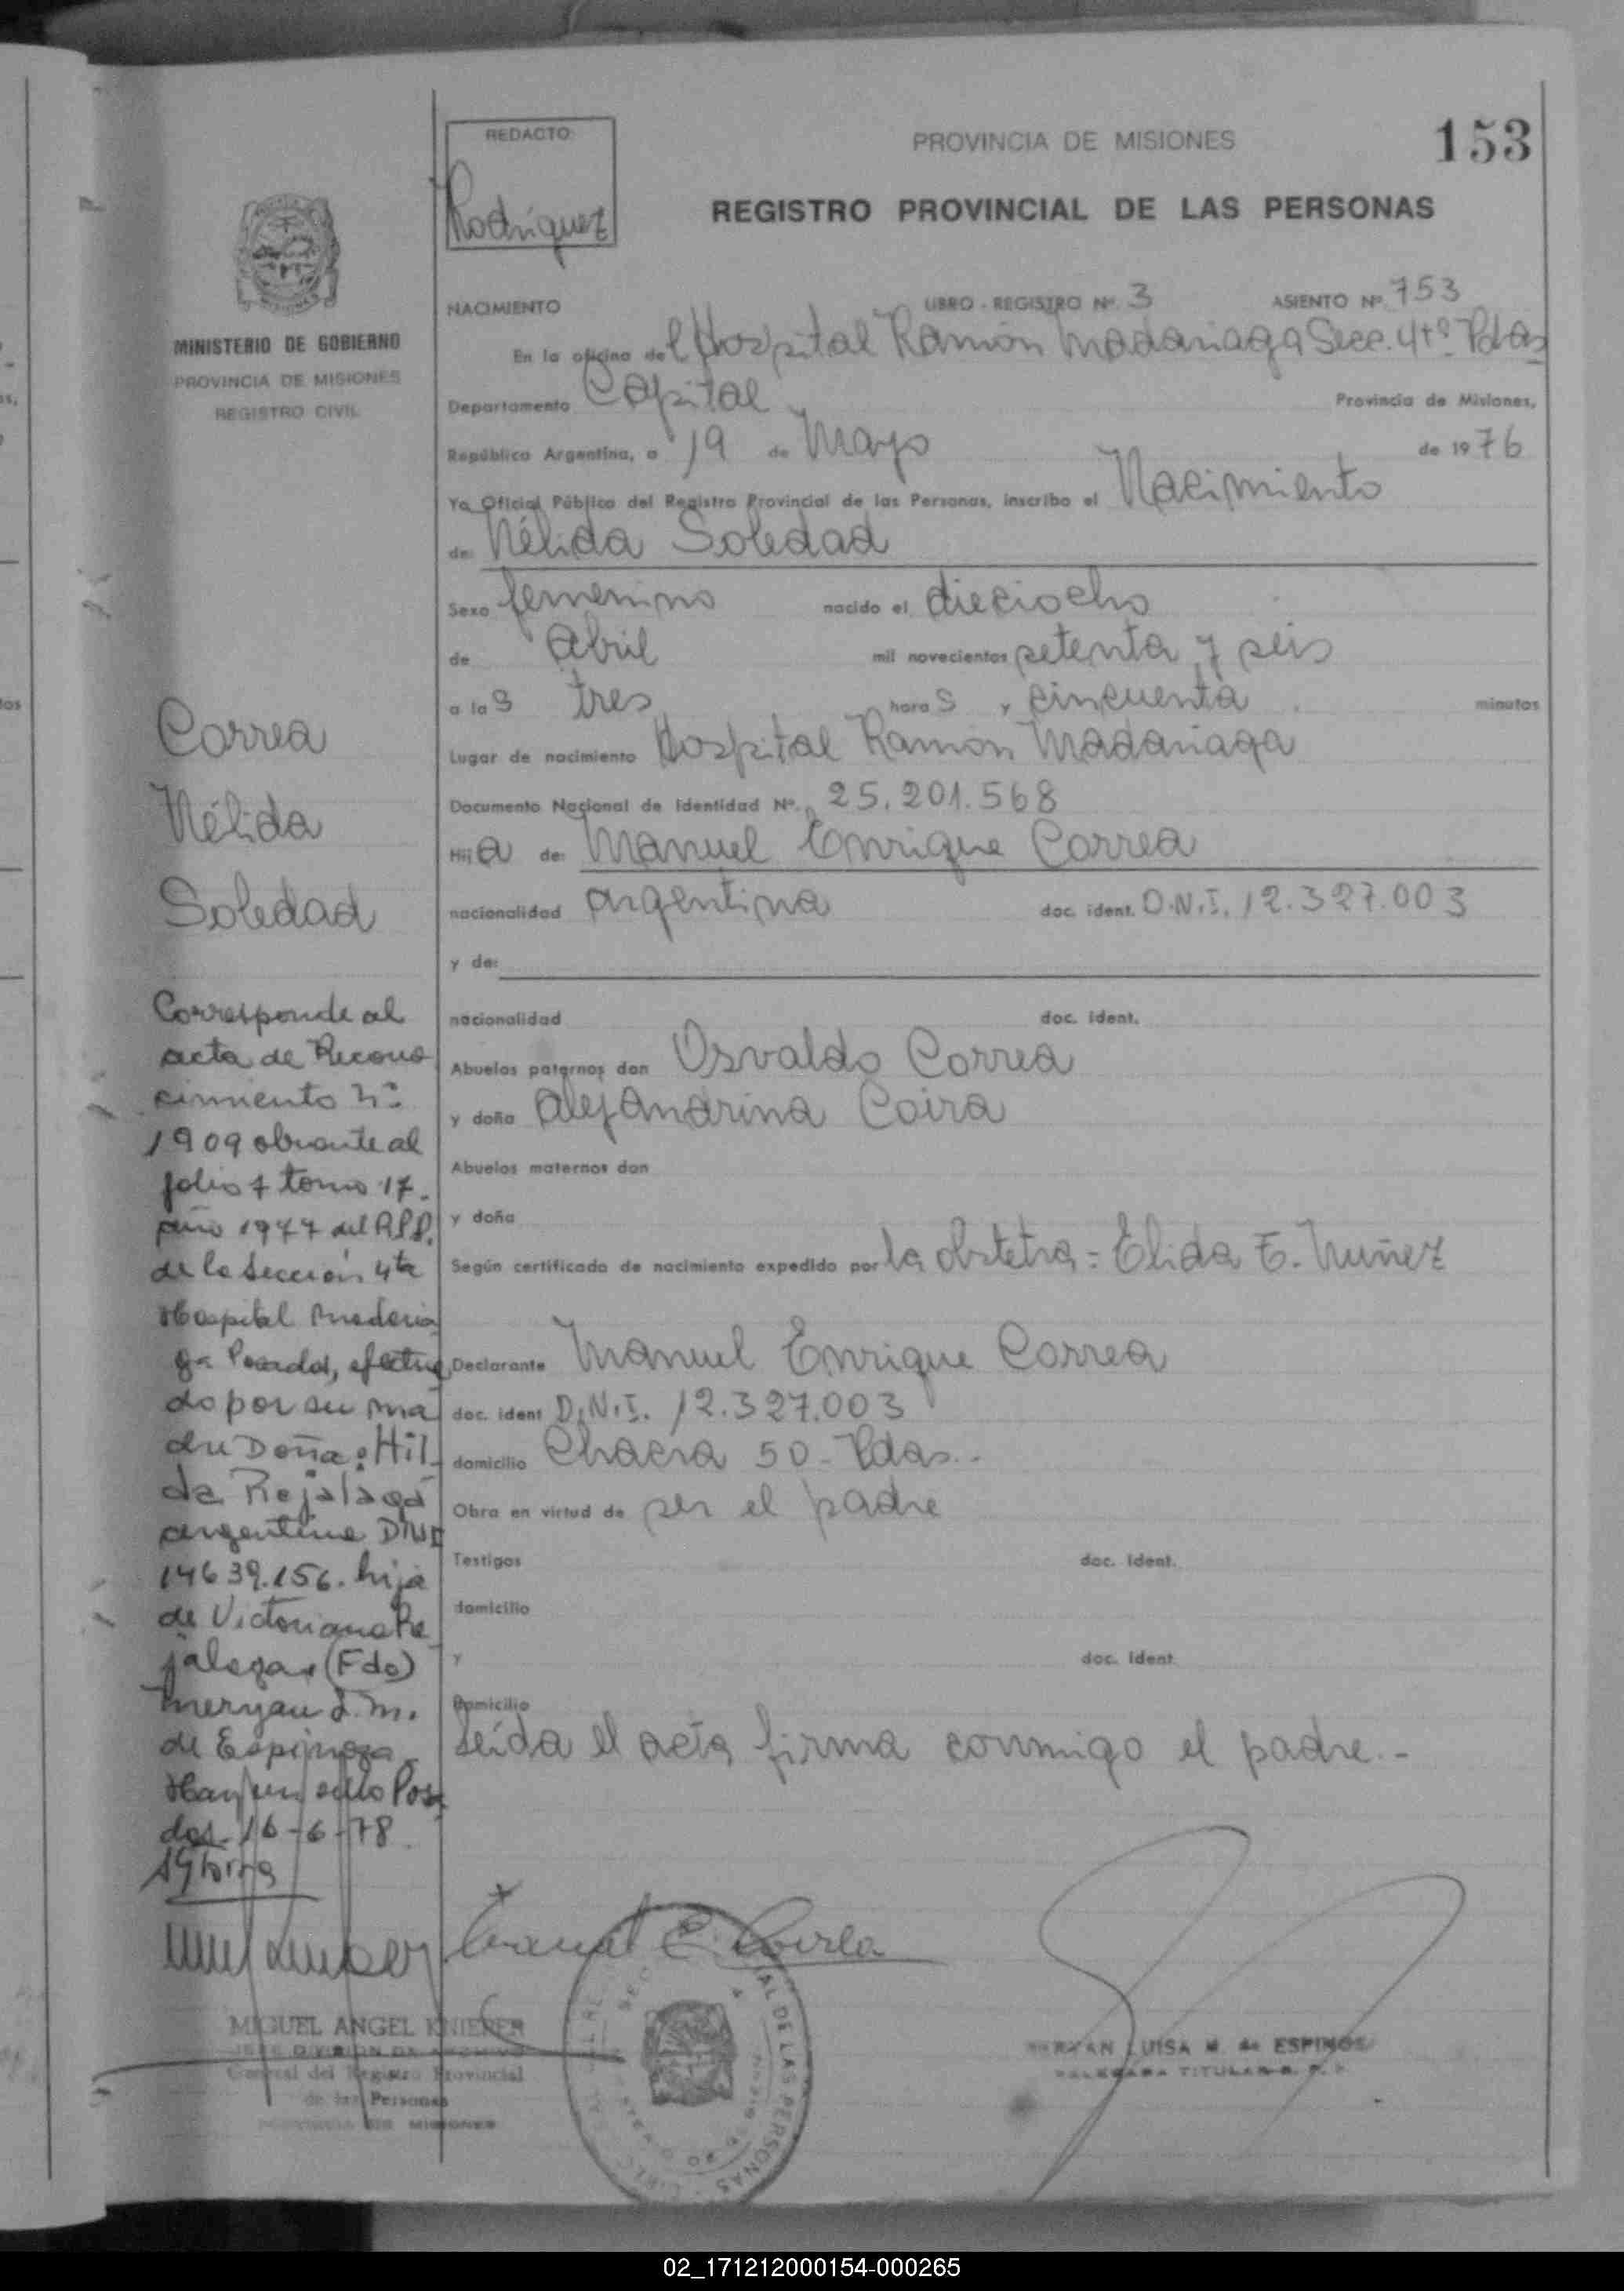 REDACTO:
Rodriguez
PROVINCIA DE MISIONES
153
REGISTRO PROVINCIAL DE LAS PERSONAS
MINISTERIO DE GOBIERNO
PROVINCIA DE MISIONES
REGISTRO CIVIL
NACIMIENTO LIBRO - REGISTRO Nº. 3 ASIENTO Nº. 753
En la oficina del Hospital Ramón Madariaga Secc. 4tª Pdas
Departamento Capital Provincia de Misiones,
República Argentina, a 19 de Mayo de 1976
Yo Oficial Público del Registro Provincial de las Personas, inscribo el Nacimiento
de: Nélida Soledad
Sexo femenino nacido el dieciocho
de Abril mil novecientos setenta y seis
a las tres horas y cincuenta minutos
Lugar de nacimiento Hospital Ramón Madariaga
Documento Nacional de Identidad Nº. 25.201.568
Hija de: Manuel Enrique Correa
nacionalidad argentina doc. ident. D.N.I. 12.327.003
y de:
nacionalidad doc. ident.
Abuelos paternos don Osvaldo Correa
y doña Alejandrina Coira
Abuelos maternos don
y doña
Según certificado de nacimiento expedido por la obstetra = Elida E. Nuñez
Declarante Manuel Enrique Correa
doc. ident D.N.I. 12.327.003
domicilio Chacra 50 - Pdas.-
Obra en virtud de ser el padre
Testigos doc. ident.
domicilio
y doc. ident
Domicilio
Leída el acta firma conmigo el padre.-
Correa
Nélida
Soledad
Corresponde al
acta de Recono
cimiento Nº
1909 obrante al
folio 7 tomo 17.
año 1977 del R.P.P.
de la Sección 4ta
Hospital Madaria
ga Posadas, efectua
do por su ma
dre Doña: Hil
da Rejalaga
argentina DNI
14639.156. hija
de Victoriana Re
jalaga. (Fdo)
Meryan L. M.
de Espinoza
Hay un sello Posa
das 16-6-78
Manuel E. Correa
MIGUEL ANGEL KNIEPER
JEFE DIVISION DE ARCHIVO
General del Registro Provincial
de las Personas
PROVINCIA DE MISIONES
MERYAN LUISA M. de ESPINOSA
DELEGADA TITULAR R. P. P.
02_171212000154-000265